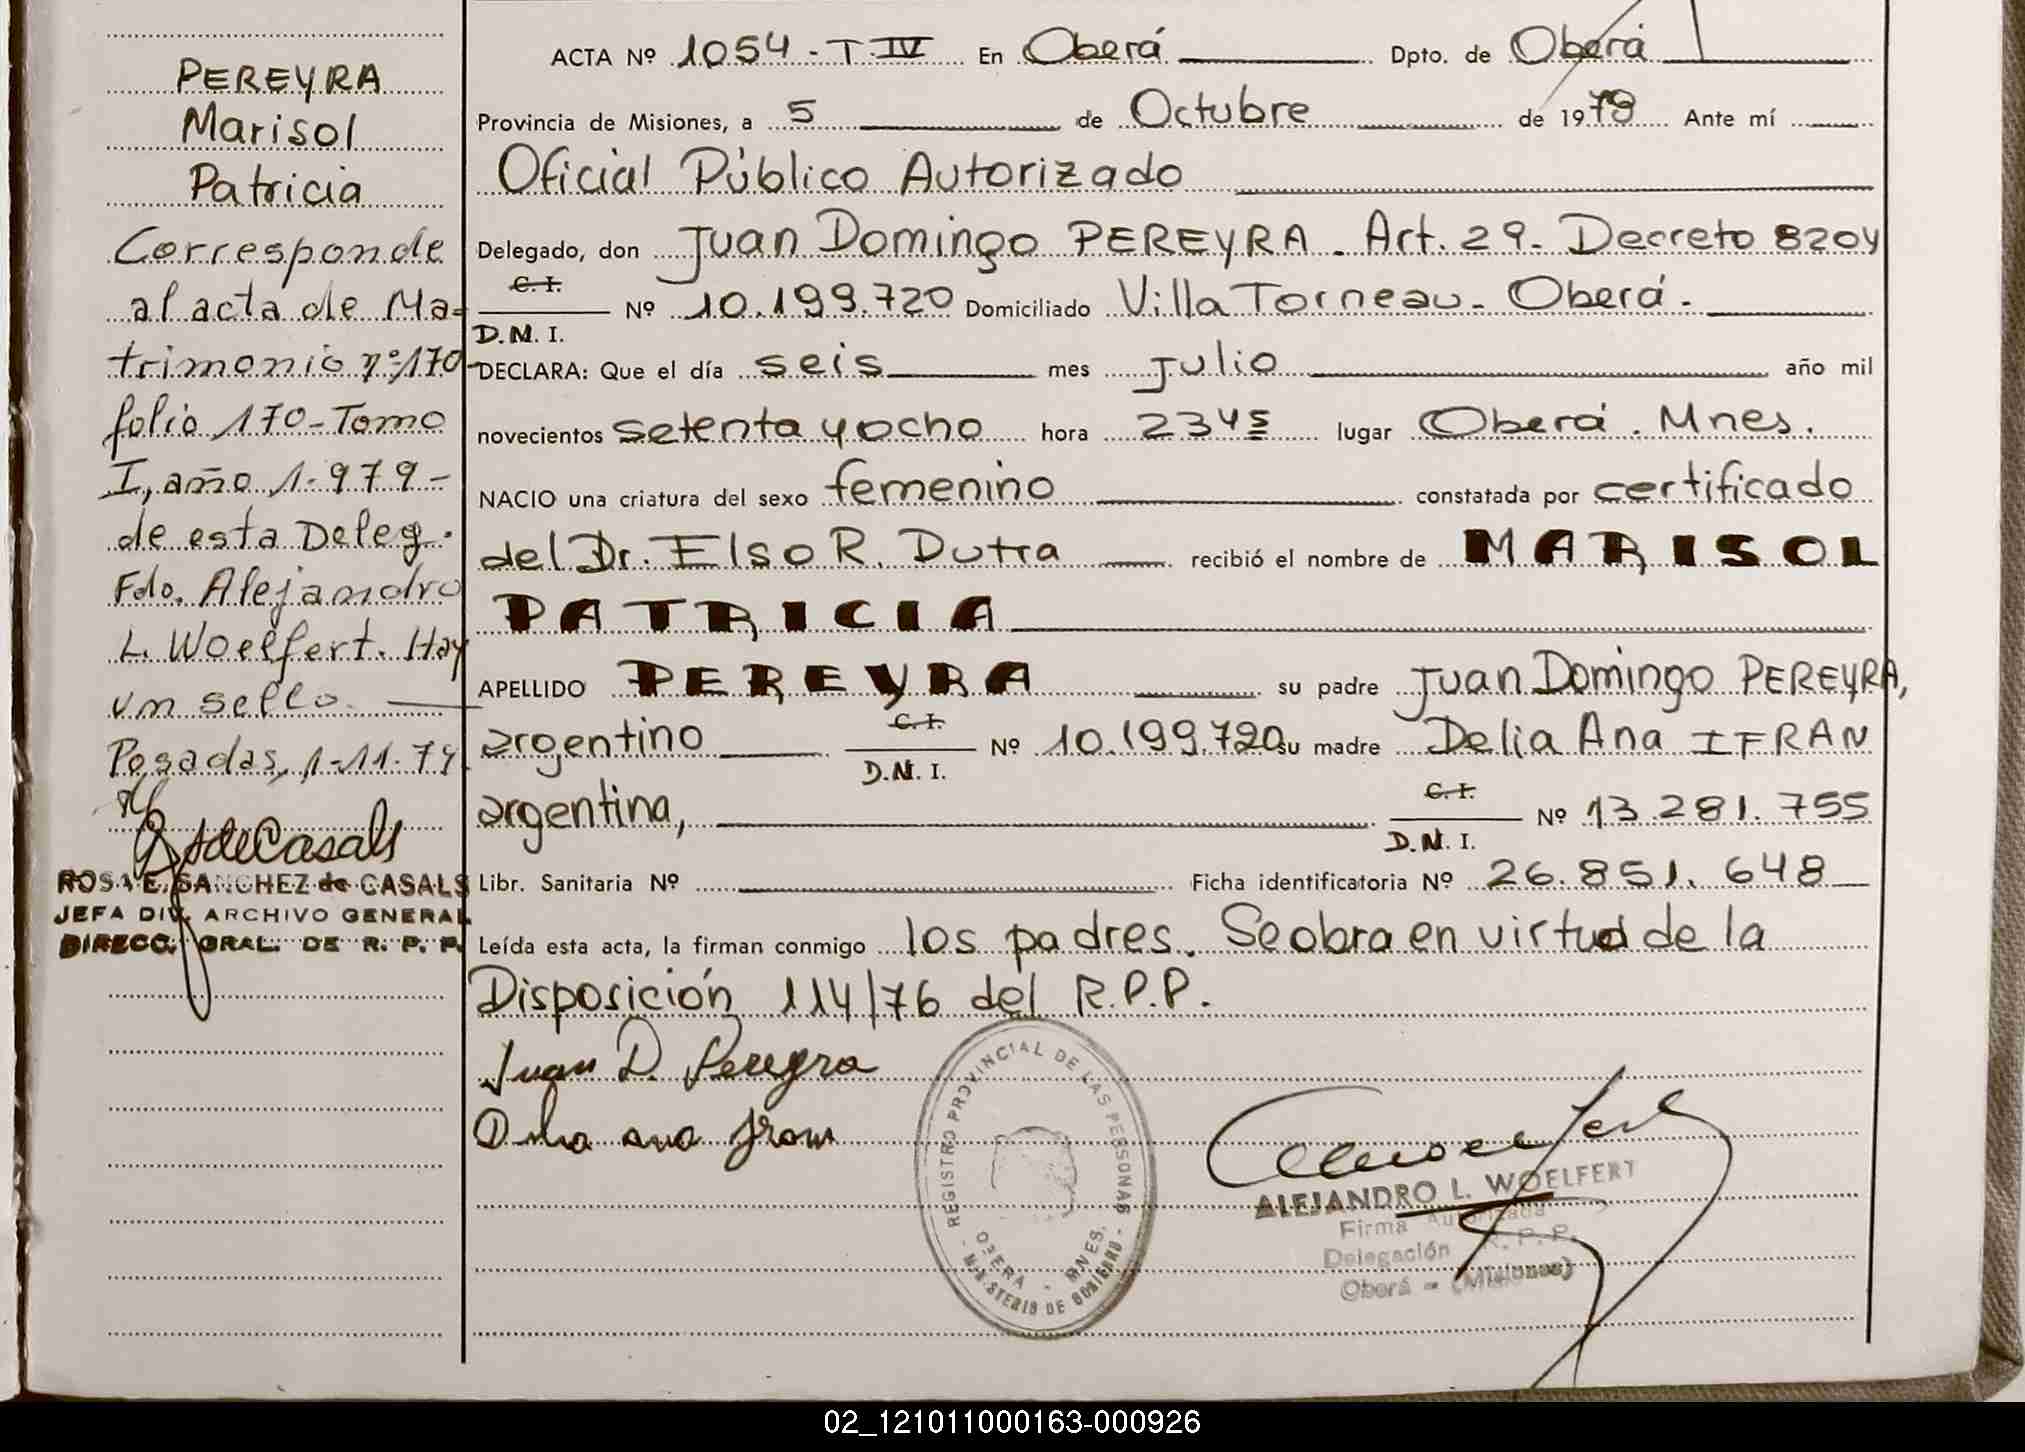 PEREYRA
Marisol
Patricia
Corresponde
al acta de Ma=
trimonio nº: 170
folio 170-Tomo
I, año 1.979-
de esta Deleg.
Fdo. Alejandro
L. Woelfert. Hay
un sello.
Posadas, 1-11-79
ROSA E. SANCHEZ de CASALS
JEFA DIV. ARCHIVO GENERAL
DIRECC. GRAL. DE R. P. P.
ACTA Nº 1054-T.IV En Oberá Dpto. de Oberá
Provincia de Misiones, a 5 de Octubre de 1979 Ante mí
Oficial Público Autorizado
Delegado, don Juan Domingo PEREYRA. Art. 29- Decreto 8204
C. I.
D. N. I. Nº 10.199.720 Domiciliado Villa Torneau- Oberá.
DECLARA: Que el día seis mes julio año mil
novecientos setenta y ocho hora 2345 lugar Oberá. Mnes.
NACIO una criatura del sexo femenino constatada por certificado
del Dr. Elso R. Dutra recibió el nombre de MARISOL
PATRICIA
APELLIDO PEREYRA su padre Juan Domingo PEREYRA,
argentino C. I. D. N. I. Nº 10.199.720 su madre Delia Ana IFRAN
argentina, C. I. D. N. I. Nº 13.281.755
Libr. Sanitaria Nº Ficha identificatoria Nº 26.851.648
Leída esta acta, la firman conmigo los padres. Se obra en virtud de la
Disposición 114/76 del R.P.P.
Juan D. Pereyra
Delia ana Ifran
REGISTRO PROVINCIAL DE LAS PERSONAS
OBERA - MNES.
MINISTERIO DE GOBIERNO
ALEJANDRO L. WOELFERT
Firma Autorizada
Delegación R. P. P.
Oberá - (Misiones)
02_121011000163-000926